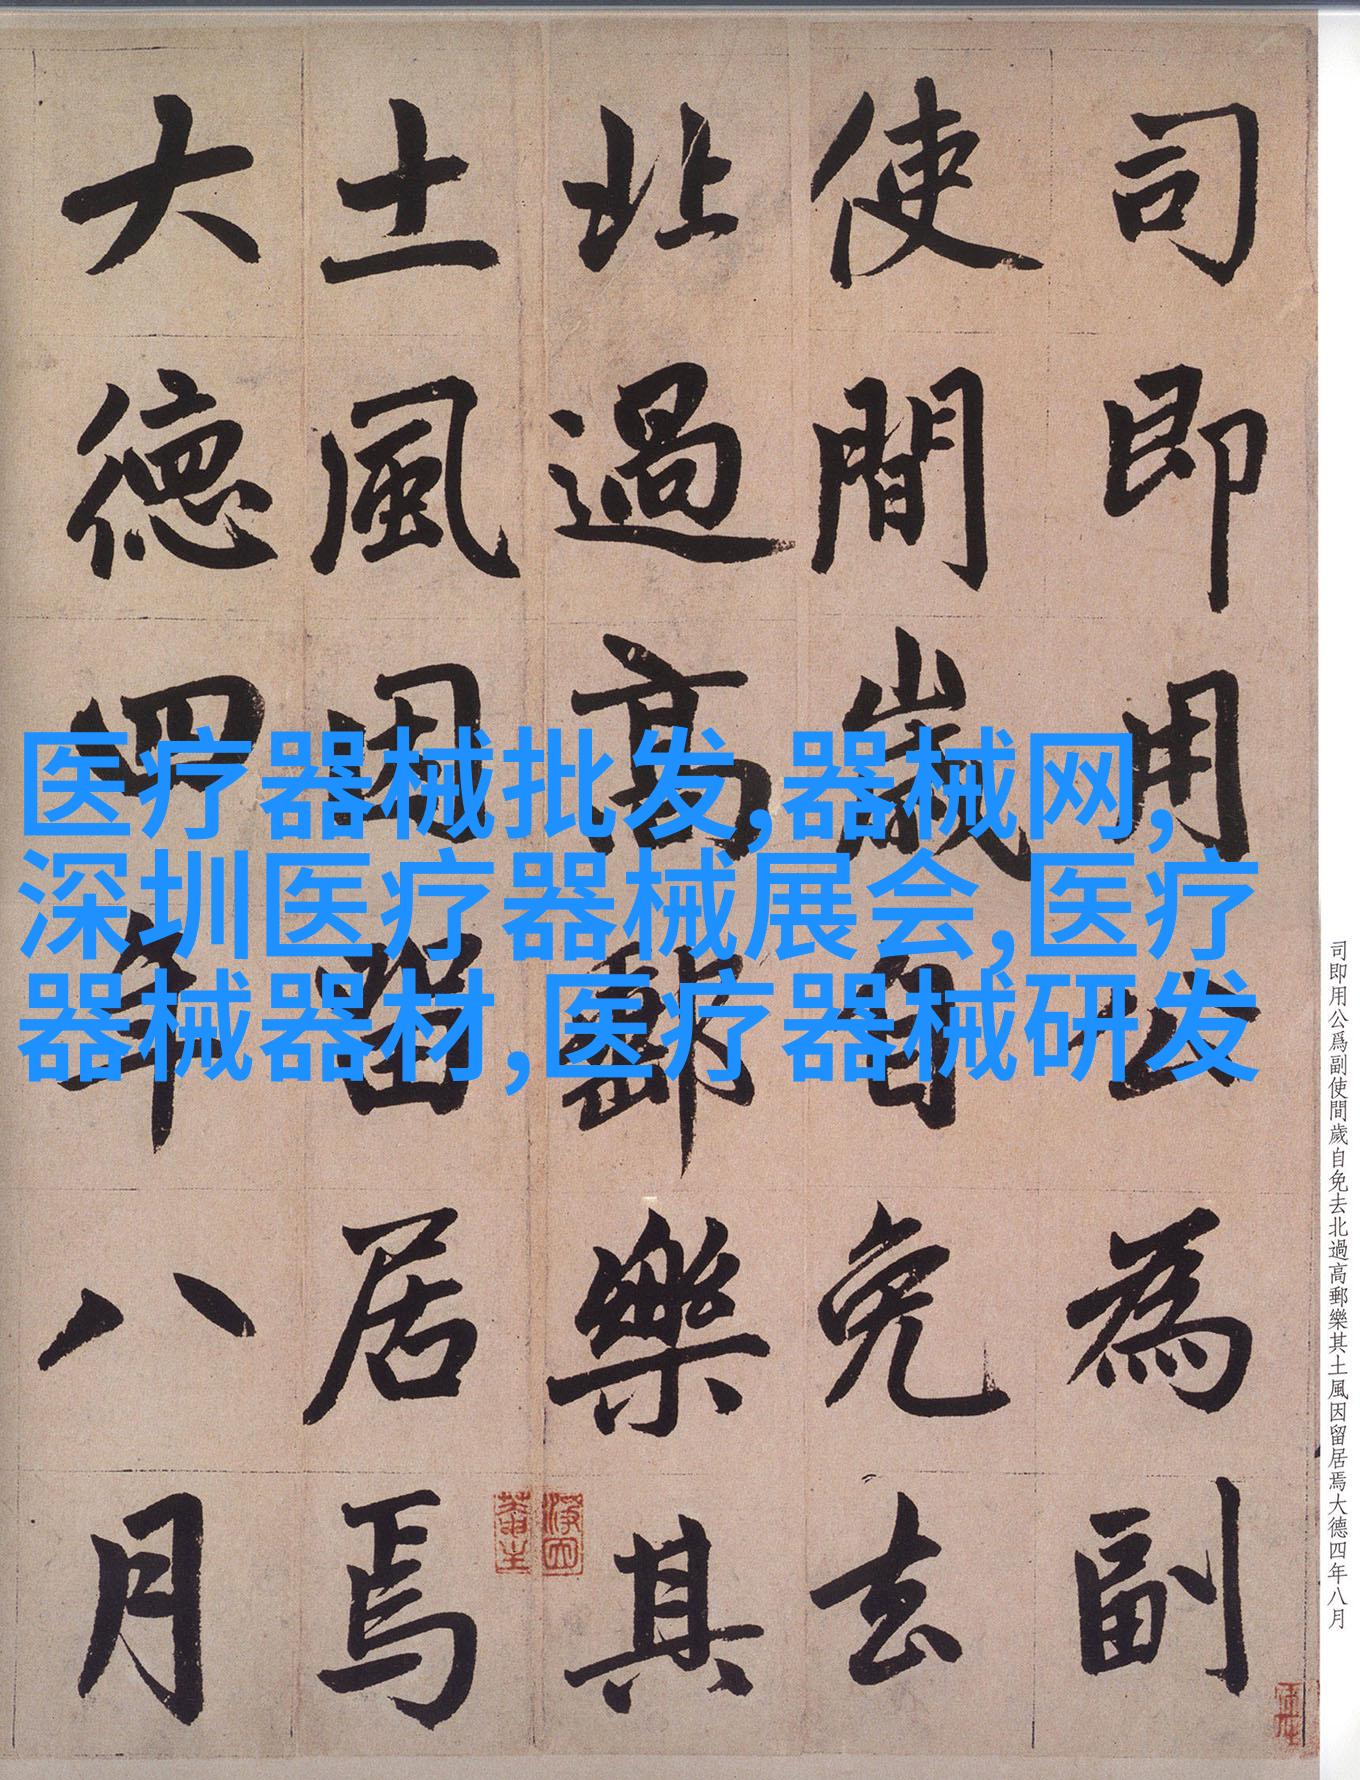 司即用公為副
使間歲自免去
北過高郵樂其
土風因留居焉
大德四年八月
医疗器械批发,器械网,
深圳医疗器械展会,医疗
器械器材,医疗器械研发
司即用公爲副使間歲自免去北過高郵樂其土風因留居焉大德四年八月